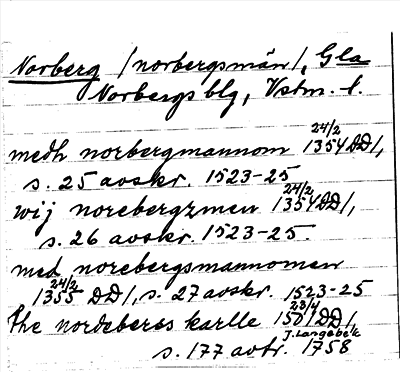 Norberg /norbergsmän/, Gla
Norbergs blg, Vstm. l.
medh norbergmannom 24/2 1354 DD/,
s. 25 avskr. 1523-25
wij norebergzmen 24/2 1354 DD/,
s. 26 avskr. 1523-25.
med norebergsmannomen
24/2 1355 DD/, s. 27 avskr. 1523-25
The nordeberss karlle 23/4 1501 DD/,
s. 177 avtr. J. Langebek 1758